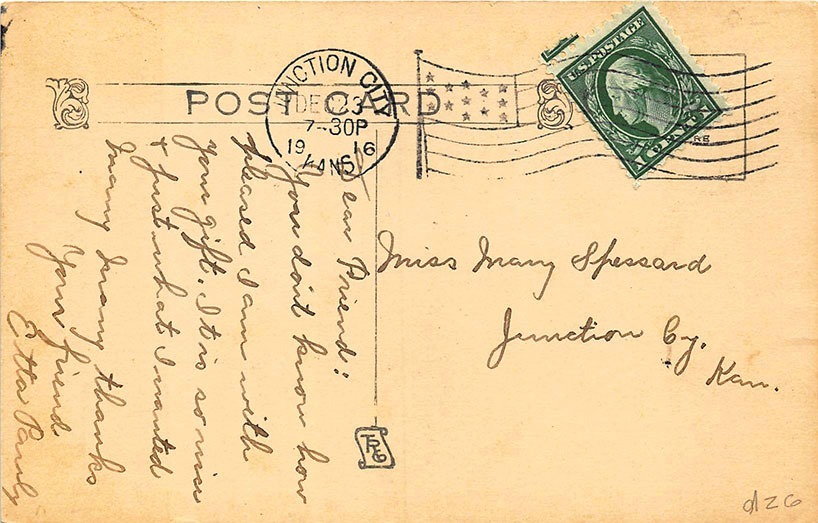 POST CARD
JUNCTION CITY
DEC 23
7-30P
19 16
KANS
U.S. POSTAGE
1 CENT 1
Dear Friend:
You don't know how
pleased I am with
your gift. It is so nice
& just what I wanted
Many many thanks
Your friend
Etta Pauly
Miss Mary Spessard
Junction Cy.
Kan.